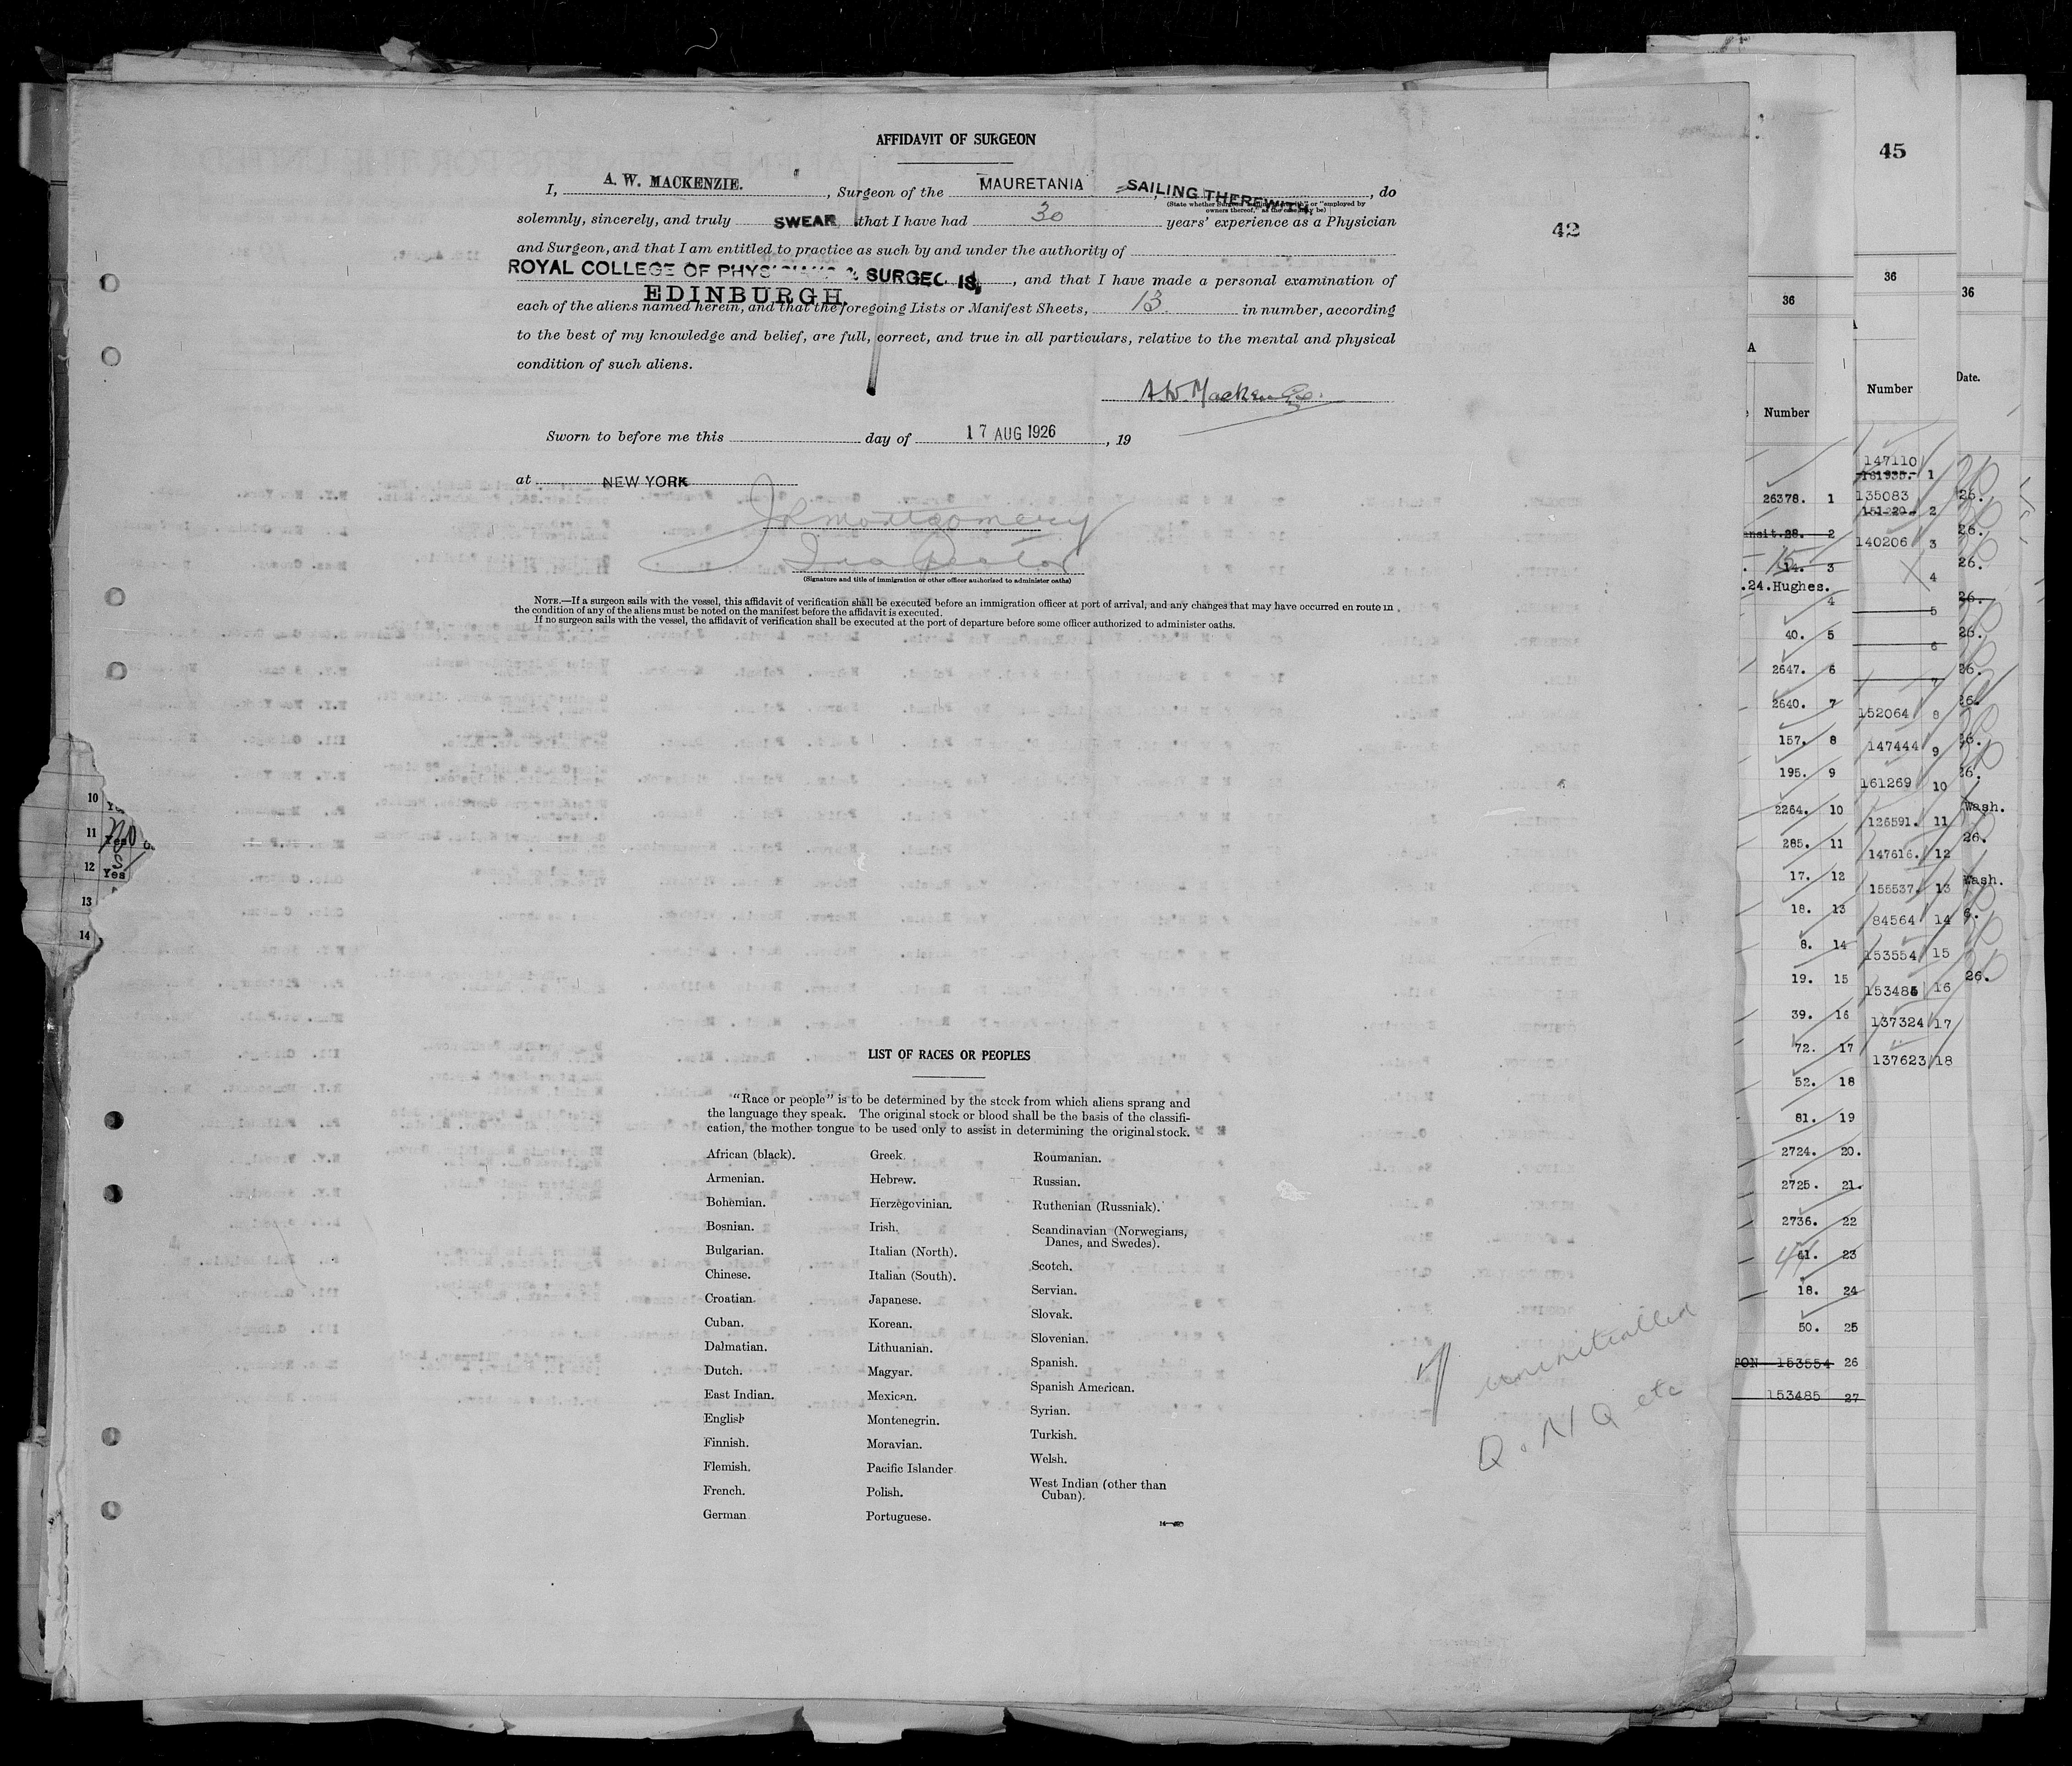 AFFIDAVIT OF SURGEON
I, A. W. MACKENZIE. , Surgeon of the MAURETANIA , SAILING THEREWITH, , do
(State whether Surgeon "sailing therewith" or "employed by
owners thereof," as the case may be)
solemnly, sincerely, and truly SWEAR that I have had 30 years' experience as a Physician
42
and Surgeon, and that I am entitled to practice as such by and under the authority of
ROYAL COLLEGE OF PHYSICIANS & SURGEONS, , and that I have made a personal examination of
EDINBURGH.
each of the aliens named herein, and that the foregoing Lists or Manifest Sheets, 13. in number, according
to the best of my knowledge and belief, are full, correct, and true in all particulars, relative to the mental and physical
condition of such aliens.
A. W. Mackenzie.
Sworn to before me this day of 17 AUG 1926 , 19
at NEW YORK
Montgomery
Inspector
(Signature and title of immigration or other officer authorized to administer oaths)
NOTE.—If a surgeon sails with the vessel, this affidavit of verification shall be executed before an immigration officer at port of arrival, and any changes that may have occurred en route in
the condition of any of the aliens must be noted on the manifest before the affidavit is executed.
If no surgeon sails with the vessel, the affidavit of verification shall be executed at the port of departure before some officer authorized to administer oaths.
LIST OF RACES OR PEOPLES
"Race or people" is to be determined by the stock from which aliens sprang and
the language they speak. The original stock or blood shall be the basis of the classifi-
cation, the mother tongue to be used only to assist in determining the original stock.
African (black).
Armenian.
Bohemian.
Bosnian.
Bulgarian.
Chinese.
Croatian.
Cuban.
Dalmatian.
Dutch.
East Indian.
English
Finnish.
Flemish.
French.
German
Greek.
Hebrew.
Herzegovinian.
Irish.
Italian (North).
Italian (South).
Japanese.
Korean.
Lithuanian.
Magyar.
Mexican.
Montenegrin.
Moravian.
Pacific Islander
Polish.
Portuguese.
Roumanian.
Russian.
Ruthenian (Russniak).
Scandinavian (Norwegians,
Danes, and Swedes).
Scotch.
Servian.
Slovak.
Slovenian.
Spanish.
Spanish American.
Syrian.
Turkish.
Welsh.
West Indian (other than
Cuban).
uninitialled
Q. N Q etc
10
11
12 Yes
13
14
36
A
Number
26378. 1
ensit.28. 2
14. 3
.24.Hughes.
4
40. 5
2647. 6
2640. 7
157. 8
195. 9
2264. 10
285. 11
17. 12
18. 13
8. 14
19. 15
39. 16
72. 17
52. 18
81. 19
2724. 20.
2725. 21.
2736. 22
41. 23
18. 24
50. 25
TON 153554 26
153485 27
45
36
Number
147110
1
135083
2
140206 3
4
5
6
7
152064 8
147444 9
161269 10
126591. 11
147616. 12
155537. 13
84564 14
153554 15
153485 16
137324 17
137623 18
36
Date.
26.
26.
26.
26.
26.
26.
26.
26.
26.
Wash.
26.
Wash.
6.
26.